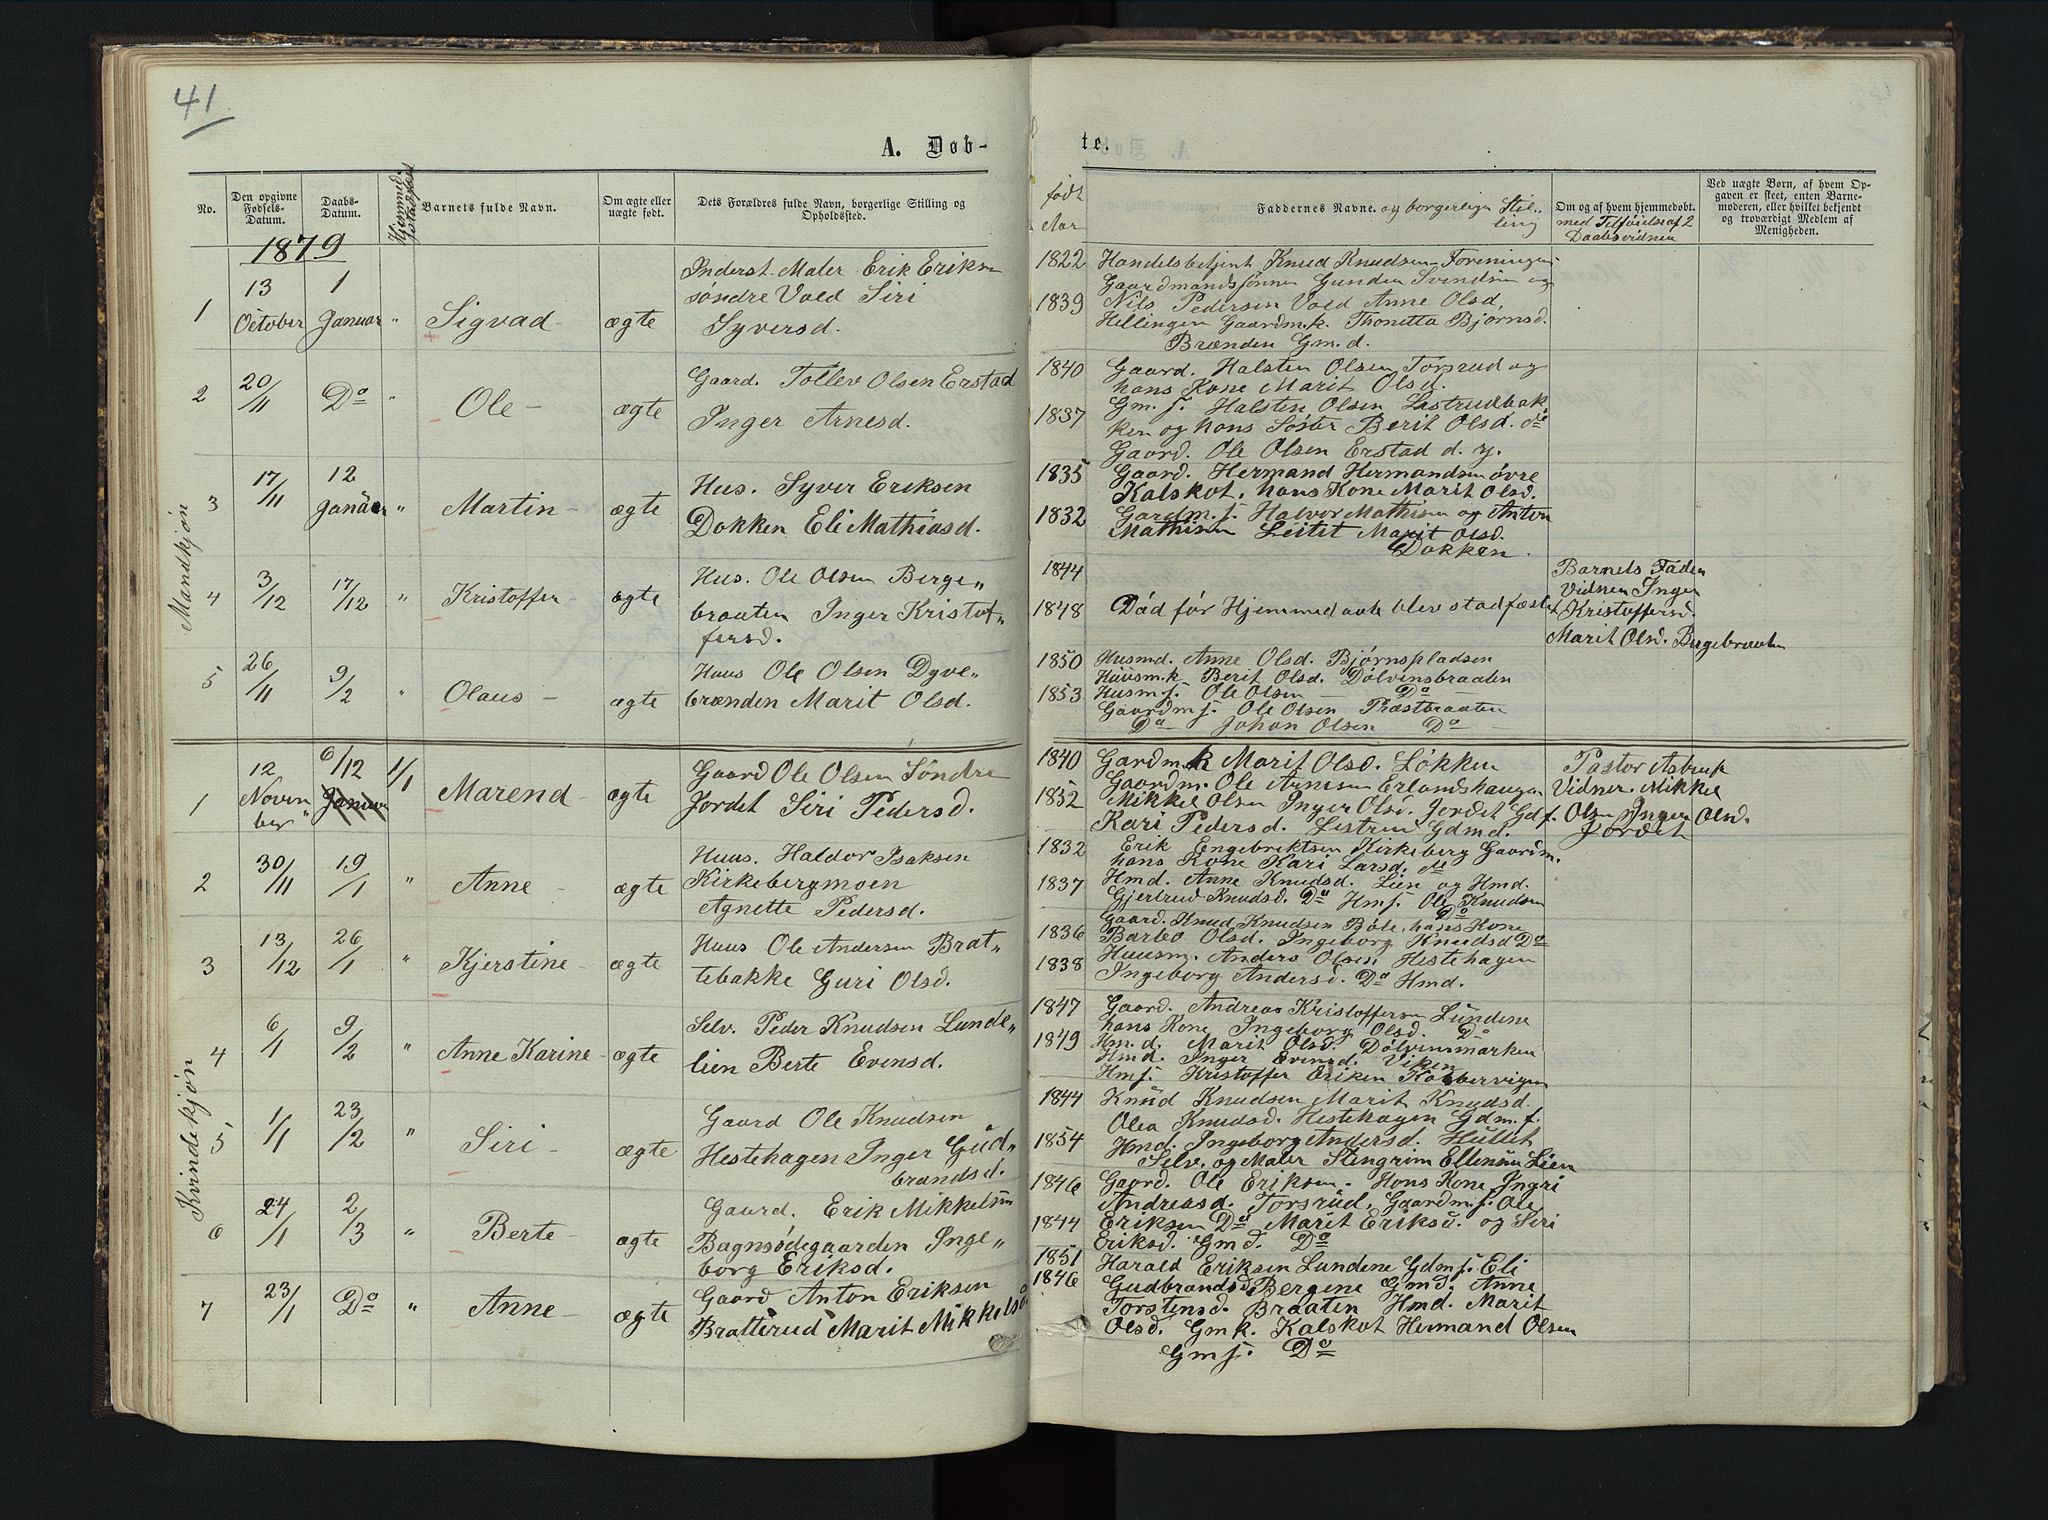 41
A. Døb-
te.
No.
Den opgivne Fødsels-Datum.
Daabs-Datum.
Hjemmed. stadfæst
Barnets fulde Navn.
Om ægte eller uægte født.
Dets Forældres fulde Navn, borgerlige Stilling og Opholdssted.
født Aar
Faddernes Navne. og borgerlige Stilling
Om og af hvem hjemmedøbt. med Tilføielse af 2 Daabsvidner
Ved uægte Børn, af hvem Opgaven er skeet, enten Barnemoderen, eller hvilket bekjendt og troværdigt Medlem af Menigheden.
1879
Mandkjøn
1
13 October
1 Januar
"
Sigvad
ægte
Inderst Maler Erik Eriks
søndre Vold Siri
Syversd.
1822
1839
Handelsbetjent Knud Knudsen Foreningen
Gaardmandssønnen Gunder Svendsen og
Nils Pedersen Vold Anne Olsd.
Hellingen Gaardm.k. Thonetta Bjørnsd.
Brænden Gm.d.
2
20/11
Do
"
Ole
ægte
Gaard. Tollev Olsen Erstad
Inger Arnesd.
1840
1837
Gaard. Halsten Olsen Torsrud og
hans Kone Marit Olsd.
Gm.s. Halsten Olsen Lastrudbak
ken og hans Søster Berit Olsd. do
Gaard. Ole Olsen Erstad d.y.
3
17/11
12 Januar
"
Martin
ægte
Hus. Syver Eriksen
Dokken Eli Mathiasd.
1835
1832
Gaard. Hermand Hermandsen øvre
Kalskot, hans Kone Marit Olsd.
Gardm.s. Halvor Mathisen og Anton
Mathisen Leitet Marit Olsd.
Dokken.
4
3/12
17/12
"
Kristoffer
ægte
Hus. Ole Olsen Berge„
braaten Inger Kristof„
fersd.
1844
1848
Død før Hjemmedaabe blev stadfæstet
Barnets Fader
Vidner Inger
Kristoffersd.
Marit Olsd. Bergebraaten
5
26/11
9/2
"
Olaus
ægte
Huus Ole Olsen Dyve„
brænden Marit Olsd.
1850
1853
Husmd. Anne Olsd. Bjørnspladsen
Huusm.k Berit Olsd. Dølvinsbraaten
Husms. Ole Olsen Do
Gaardms. Ole Olsen Præstbraaten
Do Johan Olsen Do
Kvindekjøn
1
12 November
6/12 Januar
1/1
Marend
ægte
Gaard Ole Olsen Søndre
Jordet Siri Pedersd.
1840
1832
Gardm.k Marit Olsd. Løkken
Gaardm. Ole Arnesen Erlandshaugen
Mikkel Olsen Inger Olsd. Jordet Gdf.
Kari Pedersd. Listrud Gdmd.
Pastor Astrup
Vidner. Mikkel
Olsen Inger Olsd.
Jordet
2
30/11
19/1
"
Anne
ægte
Huus. Haldor Isaksen
Kirkebergmoen
Agnette Pedersd.
1832
1837
Erik Engebrektsen Kirkeberg Gaardm.
hans Kone Kari Larsd. do
Hmd. Anne Knudsd. Lien og Hmd.
Gjertrud Knudsd. Do Hms. Ole Knudsen
Do
3
13/12
26/1
"
Kjerstine
ægte
Huus Ole Andersen Brat„
tebakke Guri Olsd.
1836
1838
Gaard. Knud Knudsen Bøle, hans Kone
Barbo Olsd. Ingeborg Knudsd Do
Huusm. Anders Olsen Hestehagen
Ingeborg Andersd. Do Hmd.
4
6/1
9/2
"
Anne Karine
ægte
Selv. Peder Knudsen Lunde„
lien Berte Evensd.
1847
1849
Gaard. Andreas Kristoffersen Lundene
hans Kone Ingeborg Olsd. Do
Hm.d. Marit Olsd. Dølvinsmarken
Hmd. Inger Evensd. Viken
Hms. Kristoffer Eriken Kobbervigen
5
1/1
23/2
"
Siri
ægte
Gaard Ole Knudsen
Hestehagen Inger Gud„
brandsd.
1844
1854
Knud Knudsen Marit Knudsd.
Olea Knudsd. Hestehagen Gdm.f.
Hmd. Ingeborg Andersd. Hullet
Selv. og Maler Stengrim Ellensen Lien
6
24/1
2/3
"
Berte
ægte
Gaard. Erik Mikkelsen
Bagnsødegaarden Inge„
borg Eriksd.
1846
1844
Gaard. Ole Eriksen. Hans Kone Ingri
Andreasd. Torsrud. Gaardm.s. Ole
Eriksen Do Marit Eriksd. og Siri
Eriksd. Gmd. Do
7
23/1
Do
"
Anne
ægte
Gaard Anton Eriksen
Bratterud Marit Mikkels
1851
1846
Harald Eriksen Lundene Gdms. Eli
Gudbrandsd. Bergene Gmd. Anne
Torstensd. Braaten Hmd. Marit
Olsd. Gmk. Kalskot Hermand Olsen
Gms. Do